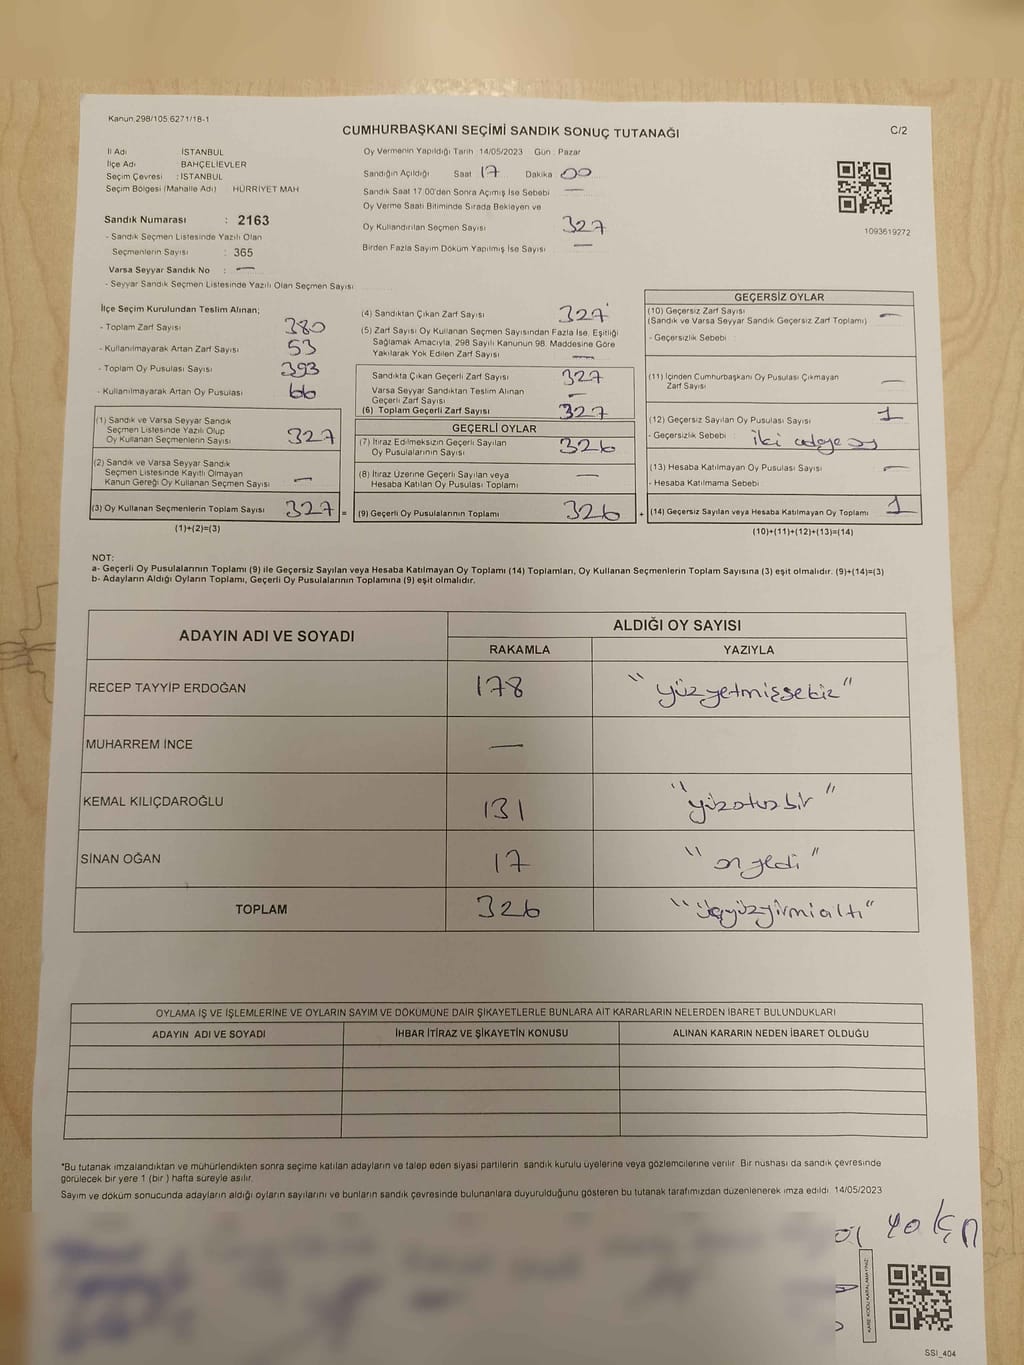 Kanun:298/105,6271/18-1
CUMHURBAŞKANI SEÇİMİ SANDIK SONUÇ TUTANAĞI
C/2
İl Adı İSTANBUL
İlçe Adı : BAHÇELİEVLER
Seçim Çevresi : İSTANBUL
Seçim Bölgesi (Mahalle Adı) : HÜRRİYET MAH
Sandık Numarası : 2163
- Sandık Seçmen Listesinde Yazılı Olan
Seçmenlerin Sayısı : 365
Varsa Seyyar Sandık No : —
- Seyyar Sandık Seçmen Listesinde Yazılı Olan Seçmen Sayısı
Oy Vermenin Yapıldığı Tarih 14/05/2023 Gün : Pazar
Sandığın Açıldığı Saat 17 Dakika 00
Sandık Saat 17.00'den Sonra Açımış İse Sebebi —
Oy Verme Saati Bitiminde Sırada Bekleyen ve
Oy Kullandırılan Seçmen Sayısı 327
Birden Fazla Sayım Döküm Yapılmış İse Sayısı —
1093619272
İlçe Seçim Kurulundan Teslim Alınan;
- Toplam Zarf Sayısı 380
- Kullanılmayarak Artan Zarf Sayısı 53
- Toplam Oy Pusulası Sayısı 393
- Kullanılmayarak Artan Oy Pusulası 66
(1) Sandık ve Varsa Seyyar Sandık
Seçmen Listesinde Yazılı Olup
Oy Kullanan Seçmenlerin Sayısı 327
(2) Sandık ve Varsa Seyyar Sandık
Seçmen Listesinde Kayıtlı Olmayan
Kanun Gereği Oy Kullanan Seçmen Sayısı —
(3) Oy Kullanan Seçmenlerin Toplam Sayısı 327 =
(1)+(2)=(3)
(4) Sandıktan Çıkan Zarf Sayısı 327
(5) Zarf Sayısı Oy Kullanan Seçmen Sayısından Fazla İse, Eşitliği
Sağlamak Amacıyla, 298 Sayılı Kanunun 98. Maddesine Göre
Yakılarak Yok Edilen Zarf Sayısı —
Sandıkta Çıkan Geçerli Zarf Sayısı 327
Varsa Seyyar Sandıktan Teslim Alınan
Geçerli Zarf Sayısı —
(6) Toplam Geçerli Zarf Sayısı 327
GEÇERLİ OYLAR
(7) İtiraz Edilmeksizin Geçerli Sayılan
Oy Pusulalarının Sayısı 326
(8) İtiraz Üzerine Geçerli Sayılan veya
Hesaba Katılan Oy Pusulası Toplamı —
(9) Geçerli Oy Pusulalarının Toplamı 326 +
GEÇERSİZ OYLAR
(10) Geçersiz Zarf Sayısı —
(Sandık ve Varsa Seyyar Sandık Geçersiz Zarf Toplamı)
- Geçersizlik Sebebi
(11) İçinden Cumhurbaşkanı Oy Pusulası Çıkmayan
Zarf Sayısı —
(12) Geçersiz Sayılan Oy Pusulası Sayısı 1
- Geçersizlik Sebebi : iki adaya oy
(13) Hesaba Katılmayan Oy Pusulası Sayısı —
- Hesaba Katılmama Sebebi
(14) Geçersiz Sayılan veya Hesaba Katılmayan Oy Toplamı 1
(10)+(11)+(12)+(13)=(14)
NOT:
a- Geçerli Oy Pusulalarının Toplamı (9) ile Geçersiz Sayılan veya Hesaba Katılmayan Oy Toplamı (14) Toplamları, Oy Kullanan Seçmenlerin Toplam Sayısına (3) eşit olmalıdır. (9)+(14)=(3)
b- Adayların Aldığı Oyların Toplamı, Geçerli Oy Pusulalarının Toplamına (9) eşit olmalıdır.
ADAYIN ADI VE SOYADI ALDIĞI OY SAYISI
RAKAMLA YAZIYLA
RECEP TAYYİP ERDOĞAN 178 "yüzyetmişsekiz"
MUHARREM İNCE —
KEMAL KILIÇDAROĞLU 131 "yüzotuzbir"
SİNAN OĞAN 17 "onyedi"
TOPLAM 326 "üçyüzyirmialtı"
OYLAMA İŞ VE İŞLEMLERİNE VE OYLARIN SAYIM VE DÖKÜMÜNE DAİR ŞİKAYETLERLE BUNLARA AİT KARARLARIN NELERDEN İBARET BULUNDUKLARI
ADAYIN ADI VE SOYADI İHBAR İTİRAZ VE ŞİKAYETİN KONUSU ALINAN KARARIN NEDEN İBARET OLDUĞU
*Bu tutanak imzalandıktan ve mühürlendikten sonra seçime katılan adayların ve talep eden siyasi partilerin sandık kurulu üyelerine veya gözlemcilerine verilir. Bir nüshası da sandık çevresinde
görülecek bir yere 1 (bir ) hafta süreyle asılır.
Sayım ve döküm sonucunda adayların aldığı oyların sayılarını ve bunların sandık çevresinde bulunanlara duyurulduğunu gösteren bu tutanak tarafımızdan düzenlenerek imza edildi 14/05/2023
KARE KODU KARALAMAYINIZ
SSI_404